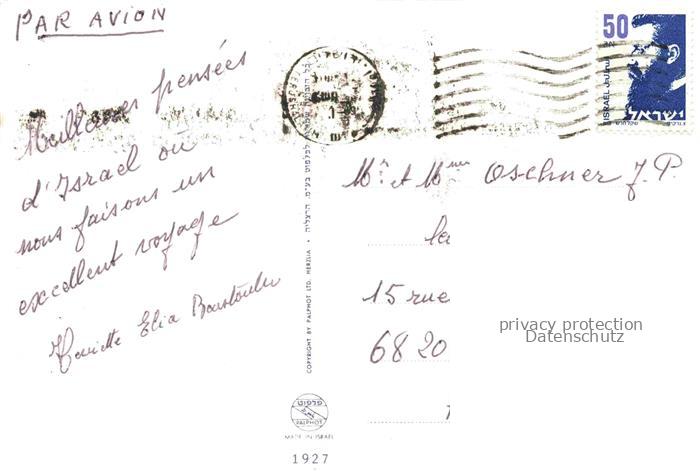 PAR AVION
Meilleures pensées
d'Israel où
nous faisons un
excellent voyage
Elia
50
ISRAEL
ישראל
Mr et Mme Oschner J.P.
la
15 rue
68 20
privacy protection
Datenschutz
COPYRIGHT BY PALPHOT LTD. HERZLIA •
פלפוט
PALPHOT
MADE IN ISRAEL
1927